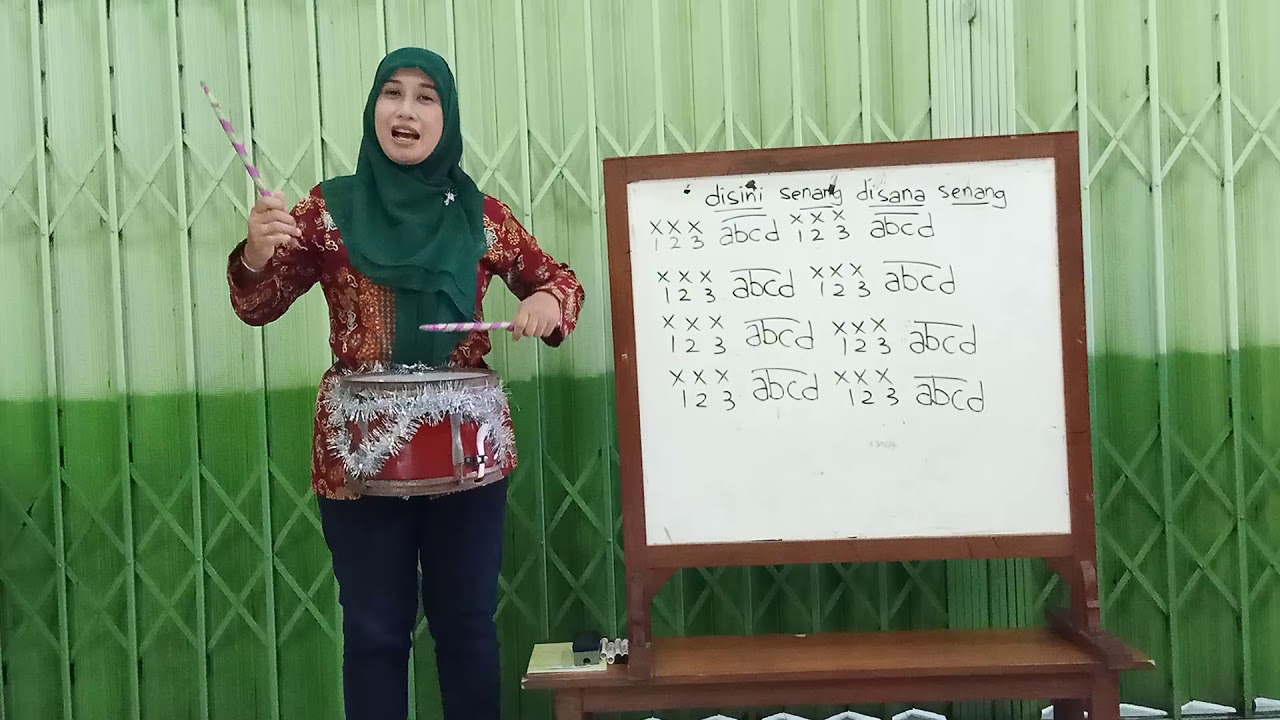 disini senang disana senang
x x x abcd x x x abcd
1 2 3 1 2 3
x x x abcd x x x abcd
1 2 3 1 2 3
x x x abcd x x x abcd
1 2 3 1 2 3
x x x abcd x x x abcd
1 2 3 1 2 3